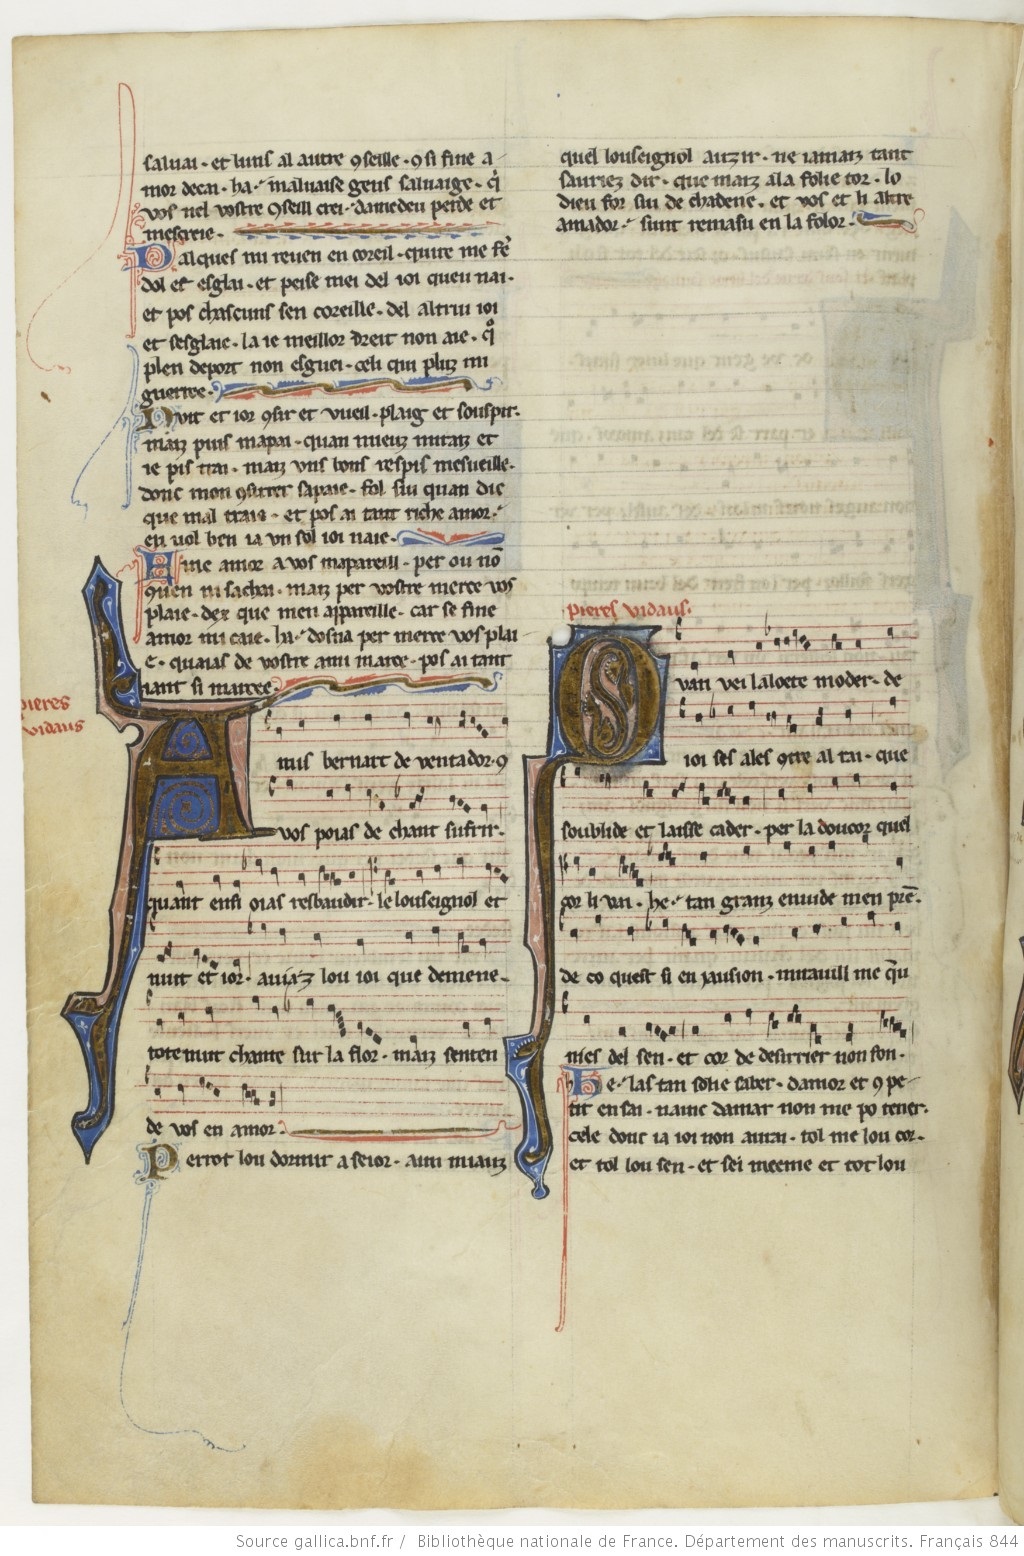 saluai · et luns al autre 9seille · 9 si fine a
mor decai · ha · maluaise gens saluaige · q̃
vos nel vostre 9seill crei · damedeu perde et
mescreie ·
Dalques mi reuen en coreil · cuire me fe
dol et esglai · et peise mei del ioi queu nai ·
et pos chascuns sen coreille · del altrui ioi
et sesglaie · la ie meillor dreit non aie · q̊
plen deport non esguei · celi qui pluz mi
guerree ·
Nvit et ior 9sir et vueil · plaig et souspir ·
maiz puis mapai · quan mieuz mitaiz et
ie pis trai · maiz vns bons respis mesueille ·
donc mon 9sirrer sapaie · fol siu quan die
que mal traie · et pos ai tant riche amor ·
en uol ben ia vn sol ioi naie ·
Fine amor a vos mapareill · per ou nō
9uen ni sachai · maiz per vostre merce vos
plaie · dex que meu appareille · car se fine
amor mi caie · ha · dosna per merce vos plai
e · quaias de vostre ami marce · pos ai tant
iant si marcee ·
pieres
vidaus
Amis bernart de ventador · 9
vos poias de chant sufrir ·
quant ensi oias resbaudir · le louseignol et
nuit et ior · auiaz lou ioi que demene ·
tote nuit chante sur la flor · maiz senten
de vos en amor ·
Perrot lou dormir a seior · aim miauz
quel louseignol auzir · ne iamaiz tant
sauriez dir · que maiz ala folie tor · lo
dieu for siu de chadene · et vos et li altre
amador · sunt remasu en la folor ·
pieres vidaus ·
Quan vei laloete moder · de
ioi ses ales 9tre al rai · que
soublide et laisse cader · per la doucor quel
cor li vai · he · tan granz enuide men prē ·
de co quest si en jausion · mirauill me q̄u
nies del sen · et cor de desirrier non fon ·
He · las tan sohe saber · damor et 9 pe
tit en sai · nainc damar non me po tener ·
cele donc ia ioi non aurai · tol me lou cor ·
et tol lou sen · et sei meeme et tot lou
Source gallica.bnf.fr / Bibliothèque nationale de France. Département des manuscrits. Français 844